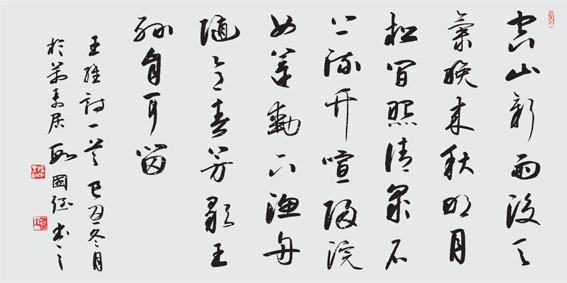 空山新雨後天
氣晚来秋明月
松間照清泉石
上流竹喧歸浣
女蓮動下漁舟
隨意春芳歇王
孫自可留
王維詩一首 己丑冬月
於 居 國 書之